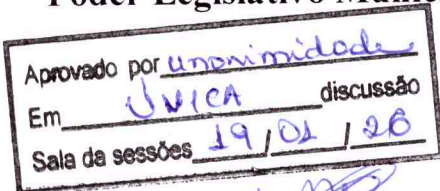 Poder Legislativo Munic
Aprovado por unanimidade
Em ÚNICA discussão
Sala da sessões 19 / 01 / 26